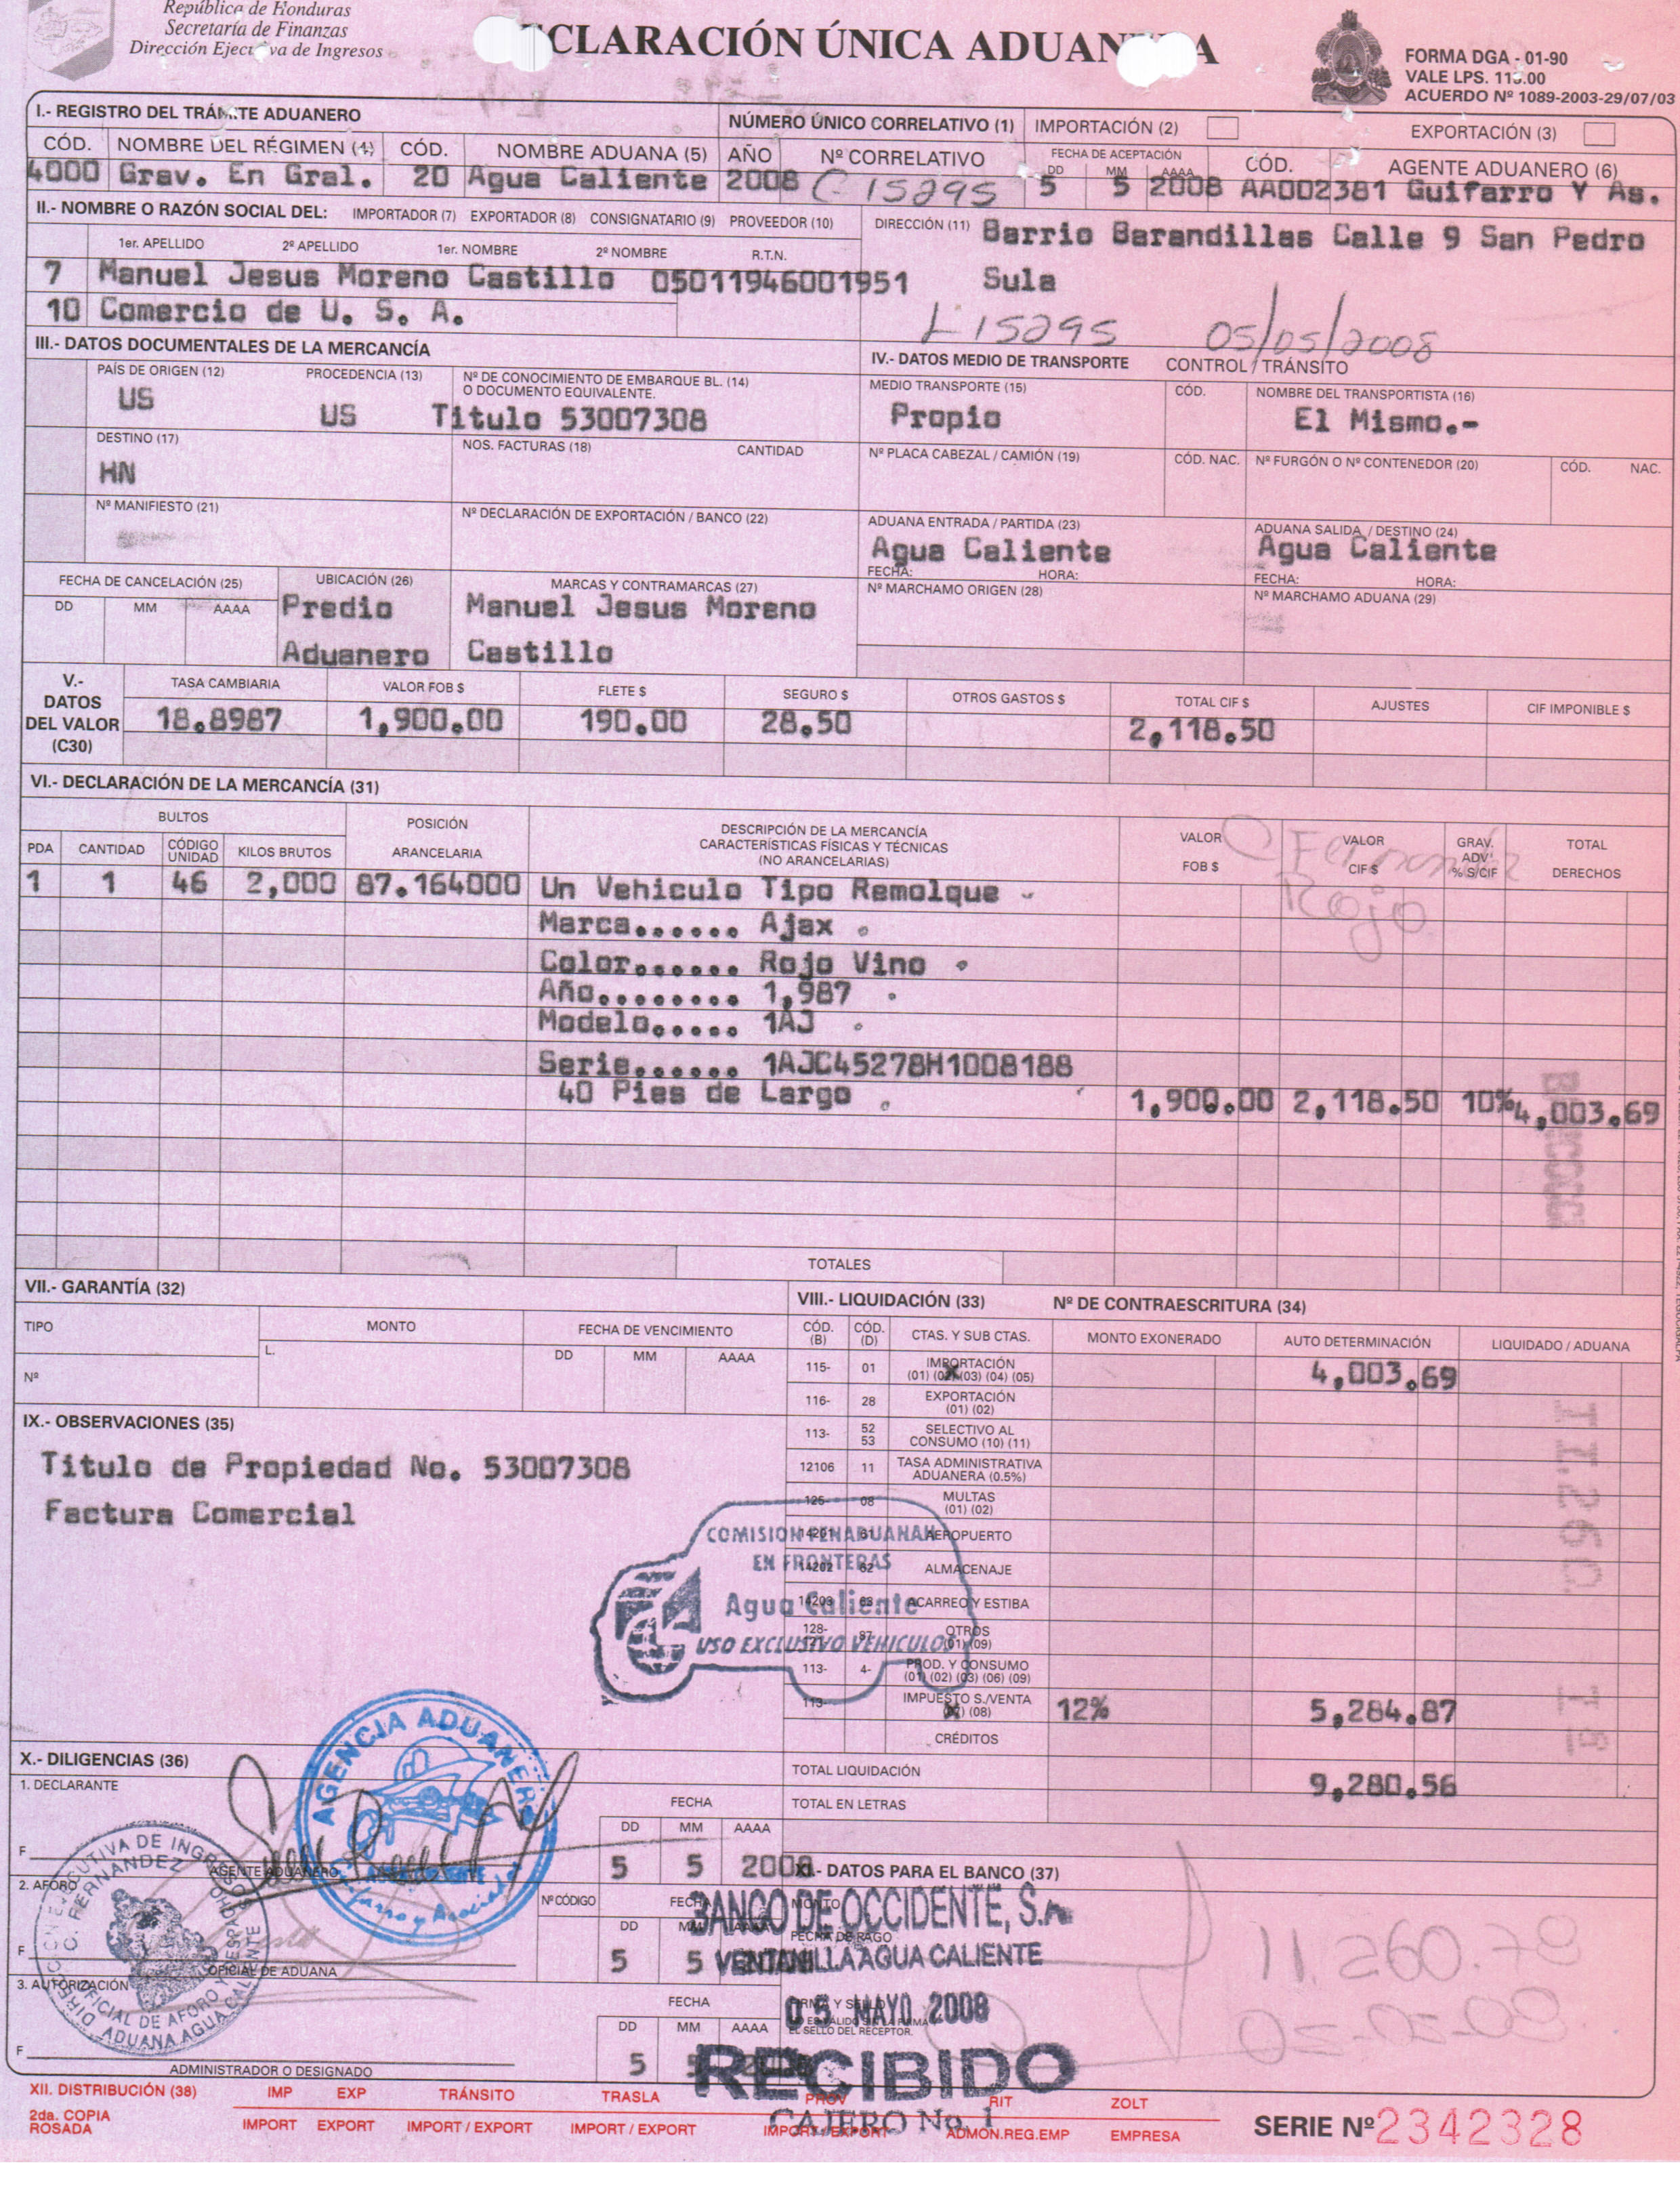 República de Honduras
Secretaría de Finanzas
Dirección Ejecutiva de Ingresos
CLARACIÓN ÚNICA ADUAN A
FORMA DGA - 01-90
VALE LPS. 113.00
ACUERDO Nº 1089-2003-29/07/03
I.- REGISTRO DEL TRÁMITE ADUANERO
NÚMERO ÚNICO CORRELATIVO (1) IMPORTACIÓN (2) EXPORTACIÓN (3)
CÓD. NOMBRE DEL RÉGIMEN (4) CÓD. NOMBRE ADUANA (5) AÑO Nº CORRELATIVO FECHA DE ACEPTACIÓN DD MM AAAA CÓD. AGENTE ADUANERO (6)
4000 Grav. En Gral. 20 Agua Caliente 2008 15295 5 5 2008 AA002381 Guifarro Y As.
II.- NOMBRE O RAZÓN SOCIAL DEL: IMPORTADOR (7) EXPORTADOR (8) CONSIGNATARIO (9) PROVEEDOR (10) DIRECCIÓN (11) Barrio Barandillas Calle 9 San Pedro
1er. APELLIDO 2º APELLIDO 1er. NOMBRE 2º NOMBRE R.T.N.
7 Manuel Jesus Moreno Castillo 05011946001951 Sula
10 Comercio de U. S. A.
L15295 05/05/2008
III.- DATOS DOCUMENTALES DE LA MERCANCÍA
IV.- DATOS MEDIO DE TRANSPORTE CONTROL / TRÁNSITO
PAÍS DE ORIGEN (12) PROCEDENCIA (13) Nº DE CONOCIMIENTO DE EMBARQUE BL. (14) O DOCUMENTO EQUIVALENTE. MEDIO TRANSPORTE (15) CÓD. NOMBRE DEL TRANSPORTISTA (16)
US US Titulo 53007308 Propio El Mismo.-
DESTINO (17) NOS. FACTURAS (18) CANTIDAD Nº PLACA CABEZAL / CAMIÓN (19) CÓD. NAC. Nº FURGÓN O Nº CONTENEDOR (20) CÓD. NAC.
HN
Nº MANIFIESTO (21) Nº DECLARACIÓN DE EXPORTACIÓN / BANCO (22) ADUANA ENTRADA / PARTIDA (23) ADUANA SALIDA / DESTINO (24)
Agua Caliente Agua Caliente
FECHA: HORA: FECHA: HORA:
FECHA DE CANCELACIÓN (25) UBICACIÓN (26) MARCAS Y CONTRAMARCAS (27) Nº MARCHAMO ORIGEN (28) Nº MARCHAMO ADUANA (29)
DD MM AAAA Predio Manuel Jesus Moreno
Aduanero Castillo
V.- DATOS DEL VALOR (C30)
TASA CAMBIARIA VALOR FOB $ FLETE $ SEGURO $ OTROS GASTOS $ TOTAL CIF $ AJUSTES CIF IMPONIBLE $
18.8987 1,900.00 190.00 28.50 2,118.50
VI.- DECLARACIÓN DE LA MERCANCÍA (31)
BULTOS
PDA CANTIDAD CÓDIGO UNIDAD KILOS BRUTOS POSICIÓN ARANCELARIA DESCRIPCIÓN DE LA MERCANCÍA CARACTERÍSTICAS FÍSICAS Y TÉCNICAS (NO ARANCELARIAS) VALOR FOB $ VALOR CIF $ GRAV. ADV' % S/CIF TOTAL DERECHOS
C Fernandez
Rojo
1 1 46 2,000 87.164000 Un Vehiculo Tipo Remolque
Marca...... Ajax
Color...... Rojo Vino
Año........ 1,987
Modelo..... 1AJ
Serie...... 1AJC45278H1008188
40 Pies de Largo 1,900.00 2,118.50 10% 4,003.69
TOTALES
VII.- GARANTÍA (32)
TIPO MONTO FECHA DE VENCIMIENTO
L. DD MM AAAA
Nº
VIII.- LIQUIDACIÓN (33) Nº DE CONTRAESCRITURA (34)
CÓD. (B) CÓD. (D) CTAS. Y SUB CTAS. MONTO EXONERADO AUTO DETERMINACIÓN LIQUIDADO / ADUANA
115- 01 IMPORTACIÓN (01) (02) (03) (04) (05) 4,003.69
116- 28 EXPORTACIÓN (01) (02)
113- 52 53 SELECTIVO AL CONSUMO (10) (11)
12106 11 TASA ADMINISTRATIVA ADUANERA (0.5%)
125- 08 MULTAS (01) (02)
14201 61 AEROPUERTO
14202 62 ALMACENAJE
14203 63 ACARREO Y ESTIBA
128- 87 OTROS (01) (09)
113- 4- PROD. Y CONSUMO (01) (02) (03) (06) (09)
113- IMPUESTO S./VENTA (08) 12% 5,284.87
CRÉDITOS
TOTAL LIQUIDACIÓN 9,280.56
TOTAL EN LETRAS
IX.- OBSERVACIONES (35)
Titulo de Propiedad No. 53007308
Factura Comercial
EN FRONTERAS
Agua Caliente
USO EXCLUSIVO VEHICULOS
X.- DILIGENCIAS (36)
1. DECLARANTE
FECHA
DD MM AAAA
F AGENTE ADUANERO 5 5 2008
AGENCIA ADUANERA
2. AFORO Nº CÓDIGO FECHA
DD MM AAAA
F OFICIAL DE ADUANA 5 5
C. FERNANDEZ
OFICIAL DE AFORO Y DESPACHO
ADUANA AGUA CALIENTE
3. AUTORIZACIÓN FECHA
DD MM AAAA
F ADMINISTRADOR O DESIGNADO 5
XI.- DATOS PARA EL BANCO (37)
MONTO
BANCO DE OCCIDENTE, S.A
FECHA DE PAGO
VENTANILLA AGUA CALIENTE
FIRMA Y SELLO
05 MAYO 2008
EL SELLO DEL RECEPTOR.
RECIBIDO
CAJERO No. 1
11.260.79
XII. DISTRIBUCIÓN (38) IMP EXP TRÁNSITO TRASLA PROV RIT ZOLT
2da. COPIA ROSADA IMPORT EXPORT IMPORT / EXPORT IMPORT / EXPORT IMPORT / EXPORT ADMON.REG.EMP EMPRESA
SERIE Nº 2342328